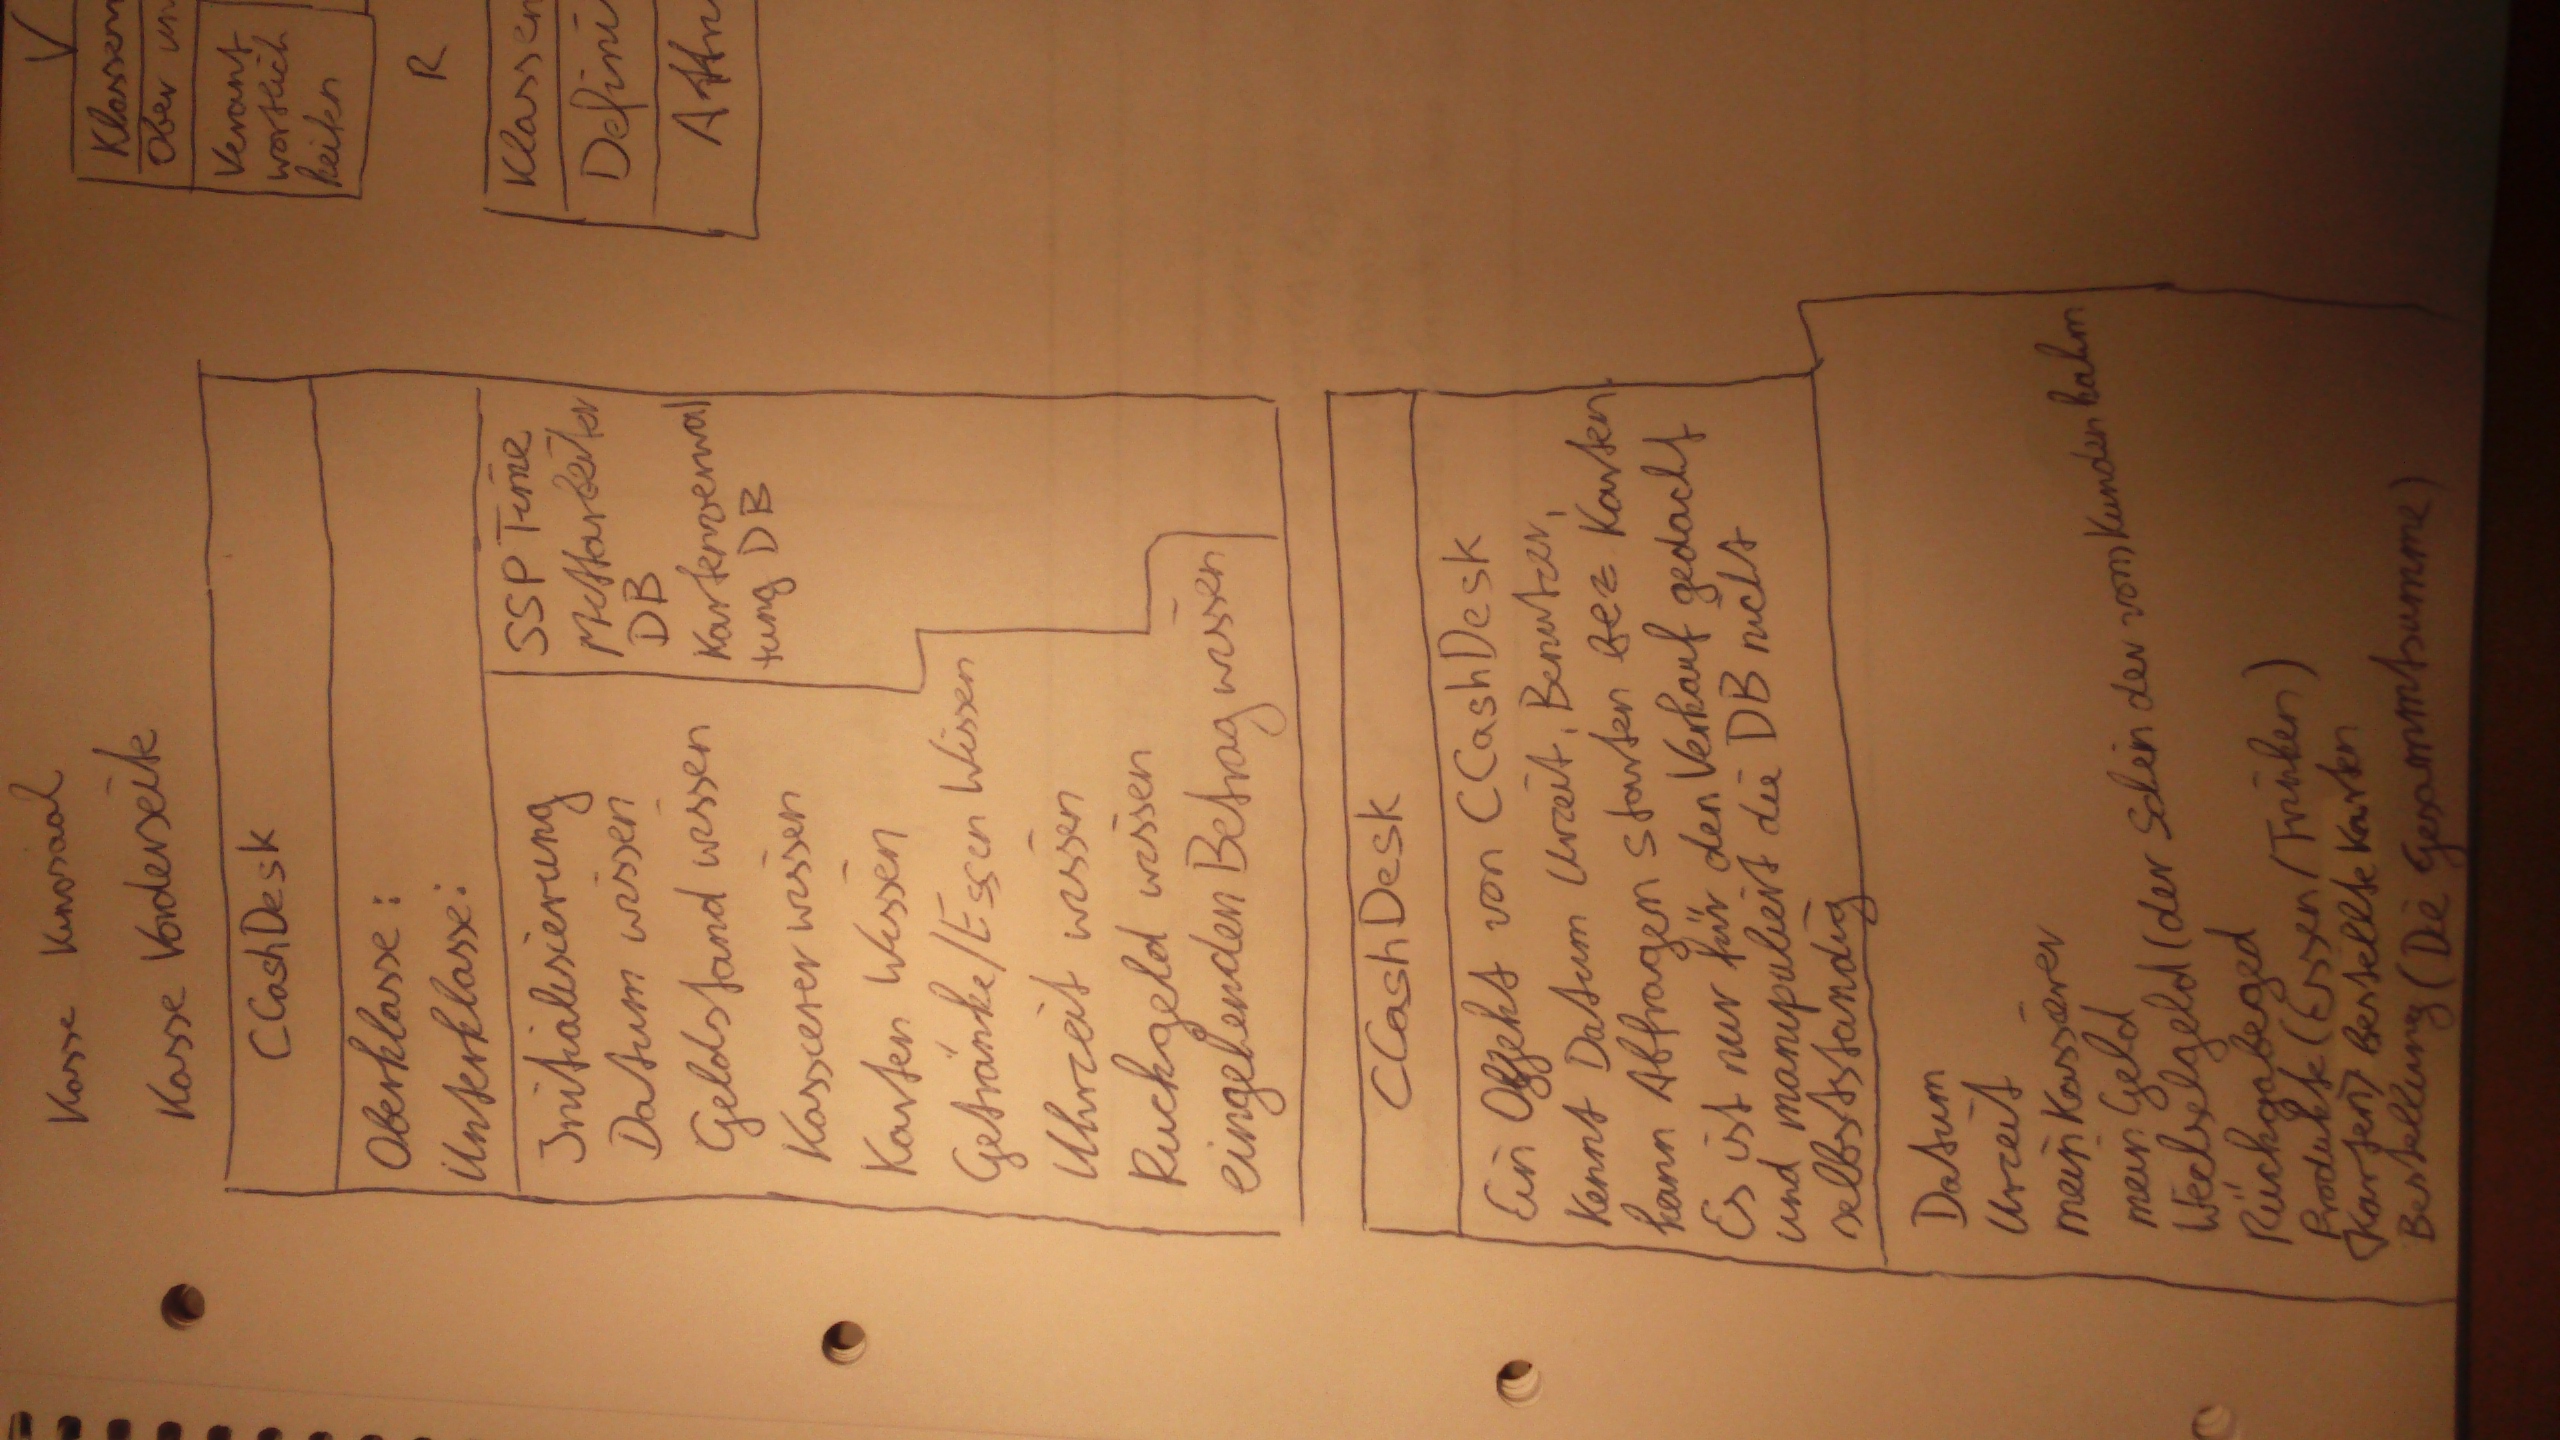 Kasse Kinosaal
Kasse Vorderseite
CCashDesk
Oberklasse:
Unterklasse:
Initialisierung
Datum wissen
Geldstand wissen
Kassierer wissen
Karten Wissen
Getränke/Essen Wissen
Uhrzeit wissen
Ruckgeld wissen
eingehenden Betrag wissen
SSP Time
Mitarbeiter
DB
Kartenverwal
tung DB
CCashDesk
Ein Objekt von CCashDesk
Kennt Datum Urzeit, Benutzer,
kann Abfragen starten bez Karten.
Es ist nur für den Verkauf gedacht
und manipuliert die DB nicht
selbstständig
Datum
Urzeit
mein Kassierer
mein Geld
Wechselgeld (der Schein der vom Kunden kahm
Rückgabeged
Produkte (Essen/Trinken)
(Karten) bestellte Karten
Bestellung (Die Gesammtsumme)
V
Klassen
Ober un
Verant
wortlich
keiten
R
Klassen
Defini
Attri